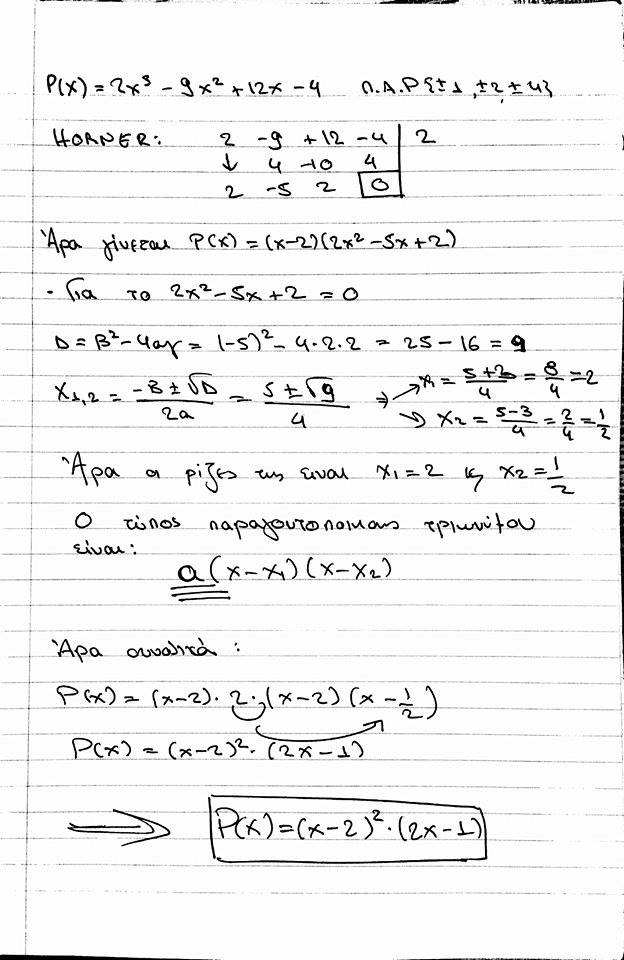 P(x) = 2x³ - 9x² + 12x - 4 Π.Α.Ρ {±1, ±2, ±4}
HORNER: 2 -9 +12 -4 | 2
↓ 4 -10 4
2 -5 2 0
Άρα γίνεται P(x) = (x-2)(2x² - 5x + 2)
· Για το 2x² - 5x + 2 = 0
D = β² - 4αγ = (-5)² - 4·2·2 = 25 - 16 = 9
x₁,₂ = (-β ± √D)/2α = (5 ± √9)/4 ⇒ x₁ = (5+3)/4 = 8/4 = 2
↘ x₂ = (5-3)/4 = 2/4 = 1/2
Άρα οι ρίζες της είναι x₁ = 2 ϗ x₂ = 1/2
Ο τύπος παραγοντοποίησης τριωνύμου
είναι:
α(x-x₁)(x-x₂)
Άρα συνολικά:
P(x) = (x-2)·2·(x-2)(x - 1/2)
P(x) = (x-2)²·(2x-1)
⟹ P(x) = (x-2)²·(2x-1)